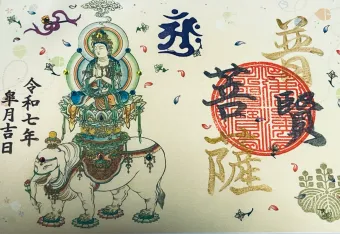 普賢
菩薩
令和七年
皐月吉日